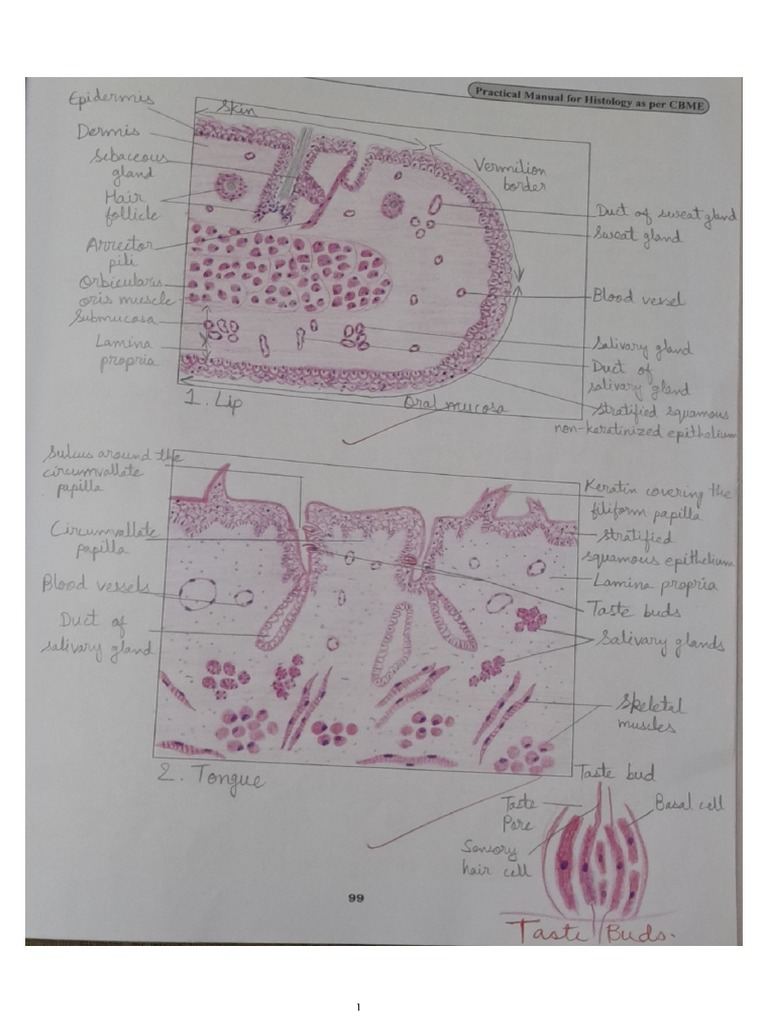 Practical Manual for Histology as per CBME
Epidermis
Skin
Dermis
Sebaceous
gland
Hair
follicle
Arrector
pili
Orbicularis
oris muscle
Submucosa
Lamina
propria
Vermilion
border
Duct of sweat gland
Sweat gland
Blood vessel
Salivary gland
Duct of
salivary gland
Stratified squamous
non-keratinized epithelium
Oral mucosa
1. Lip
Sulcus around the
circumvallate
papilla
Circumvallate
papilla
Blood vessels
Duct of
salivary gland
Keratin covering the
filiform papilla
Stratified
squamous epithelium
Lamina propria
Taste buds
Salivary glands
Skeletal
muscles
2. Tongue
Taste bud
Taste
Pore
Basal cell
Sensory
hair cell
Taste Buds.
99
1